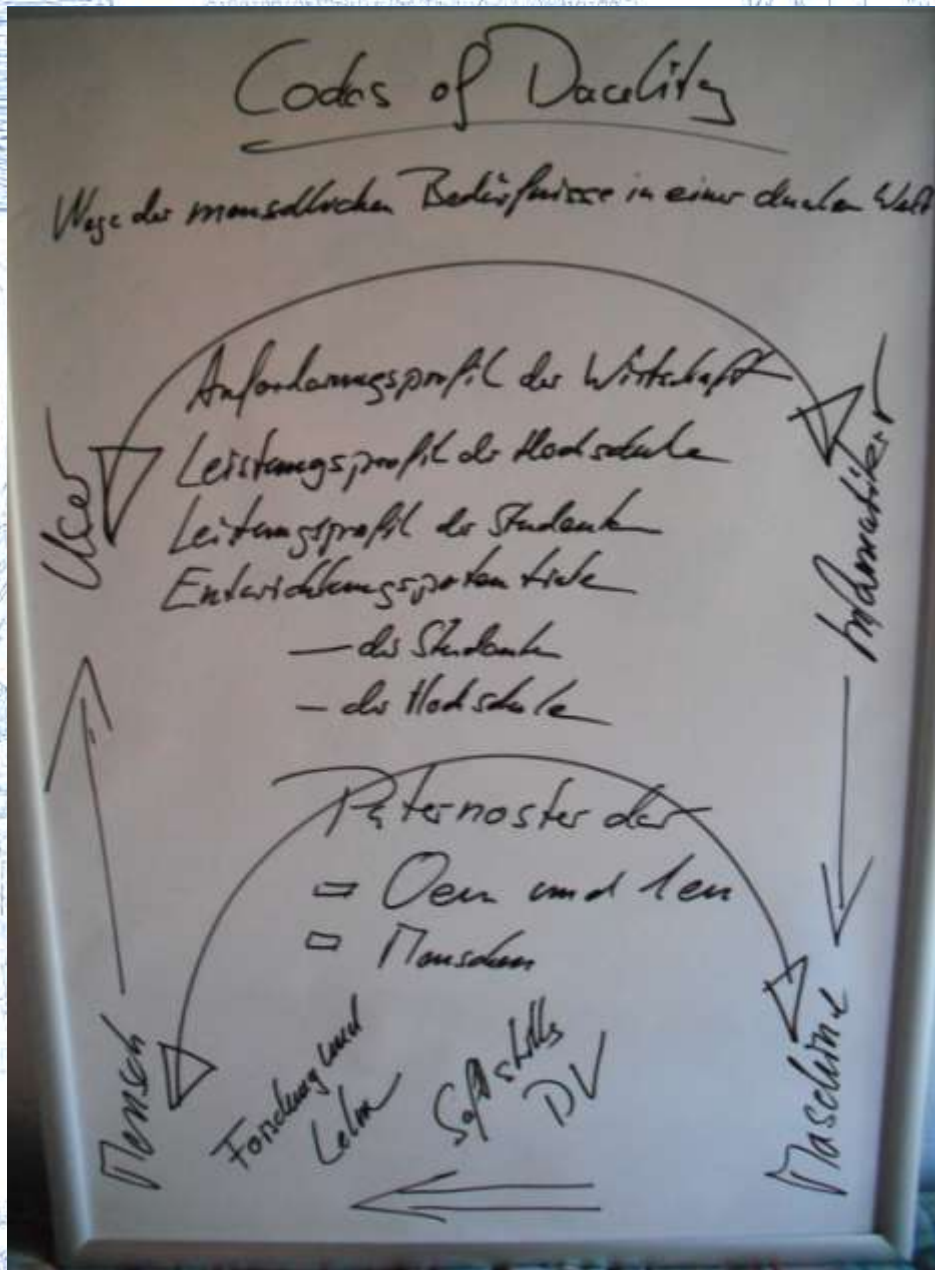 Codes of Duality
Wege der menschlichen Bedürfnisse in einer dualen Welt
Anforderungsprofil der Wirtschaft
Leistungsprofil der Hochschule
Leitungsprofil der Studenten
Entwicklungspotentiale
– der Studenten
– der Hochschule
User
Informatiker
Paternoster der
0en und 1en
Menschen
Mensch
Forschung und
Lehre
Softskills
DV
Maschine